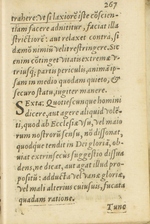 267
trahere, ut si laxior iste conscien-
tiam facere admittitur, faciat illā
strictiorē: aut relaxet contrà, si
dæmō nimiū velit restringere. Sic
enim cōtinget vitatis extremæ v-
triusq; partis periculis, animā ip-
sam in medio quodam quieto, &
securo statu, iugiter manere.
Sexta: Quotiescunque homini
dicere, aut agere aliquid volē-
ti, quod ab Ecclesiæ usu, vel maio
rum nostrorū sensu, nō dissonat,
quodque tendit in Dei gloriā, ob-
uenit extrinsecus suggestio dissua
dens, ne dicat, aut agat illud pro-
positū: adducta vel vanæ gloriæ,
vel mali alterius cuiusuis, fucata
quadam ratione.
Tunc